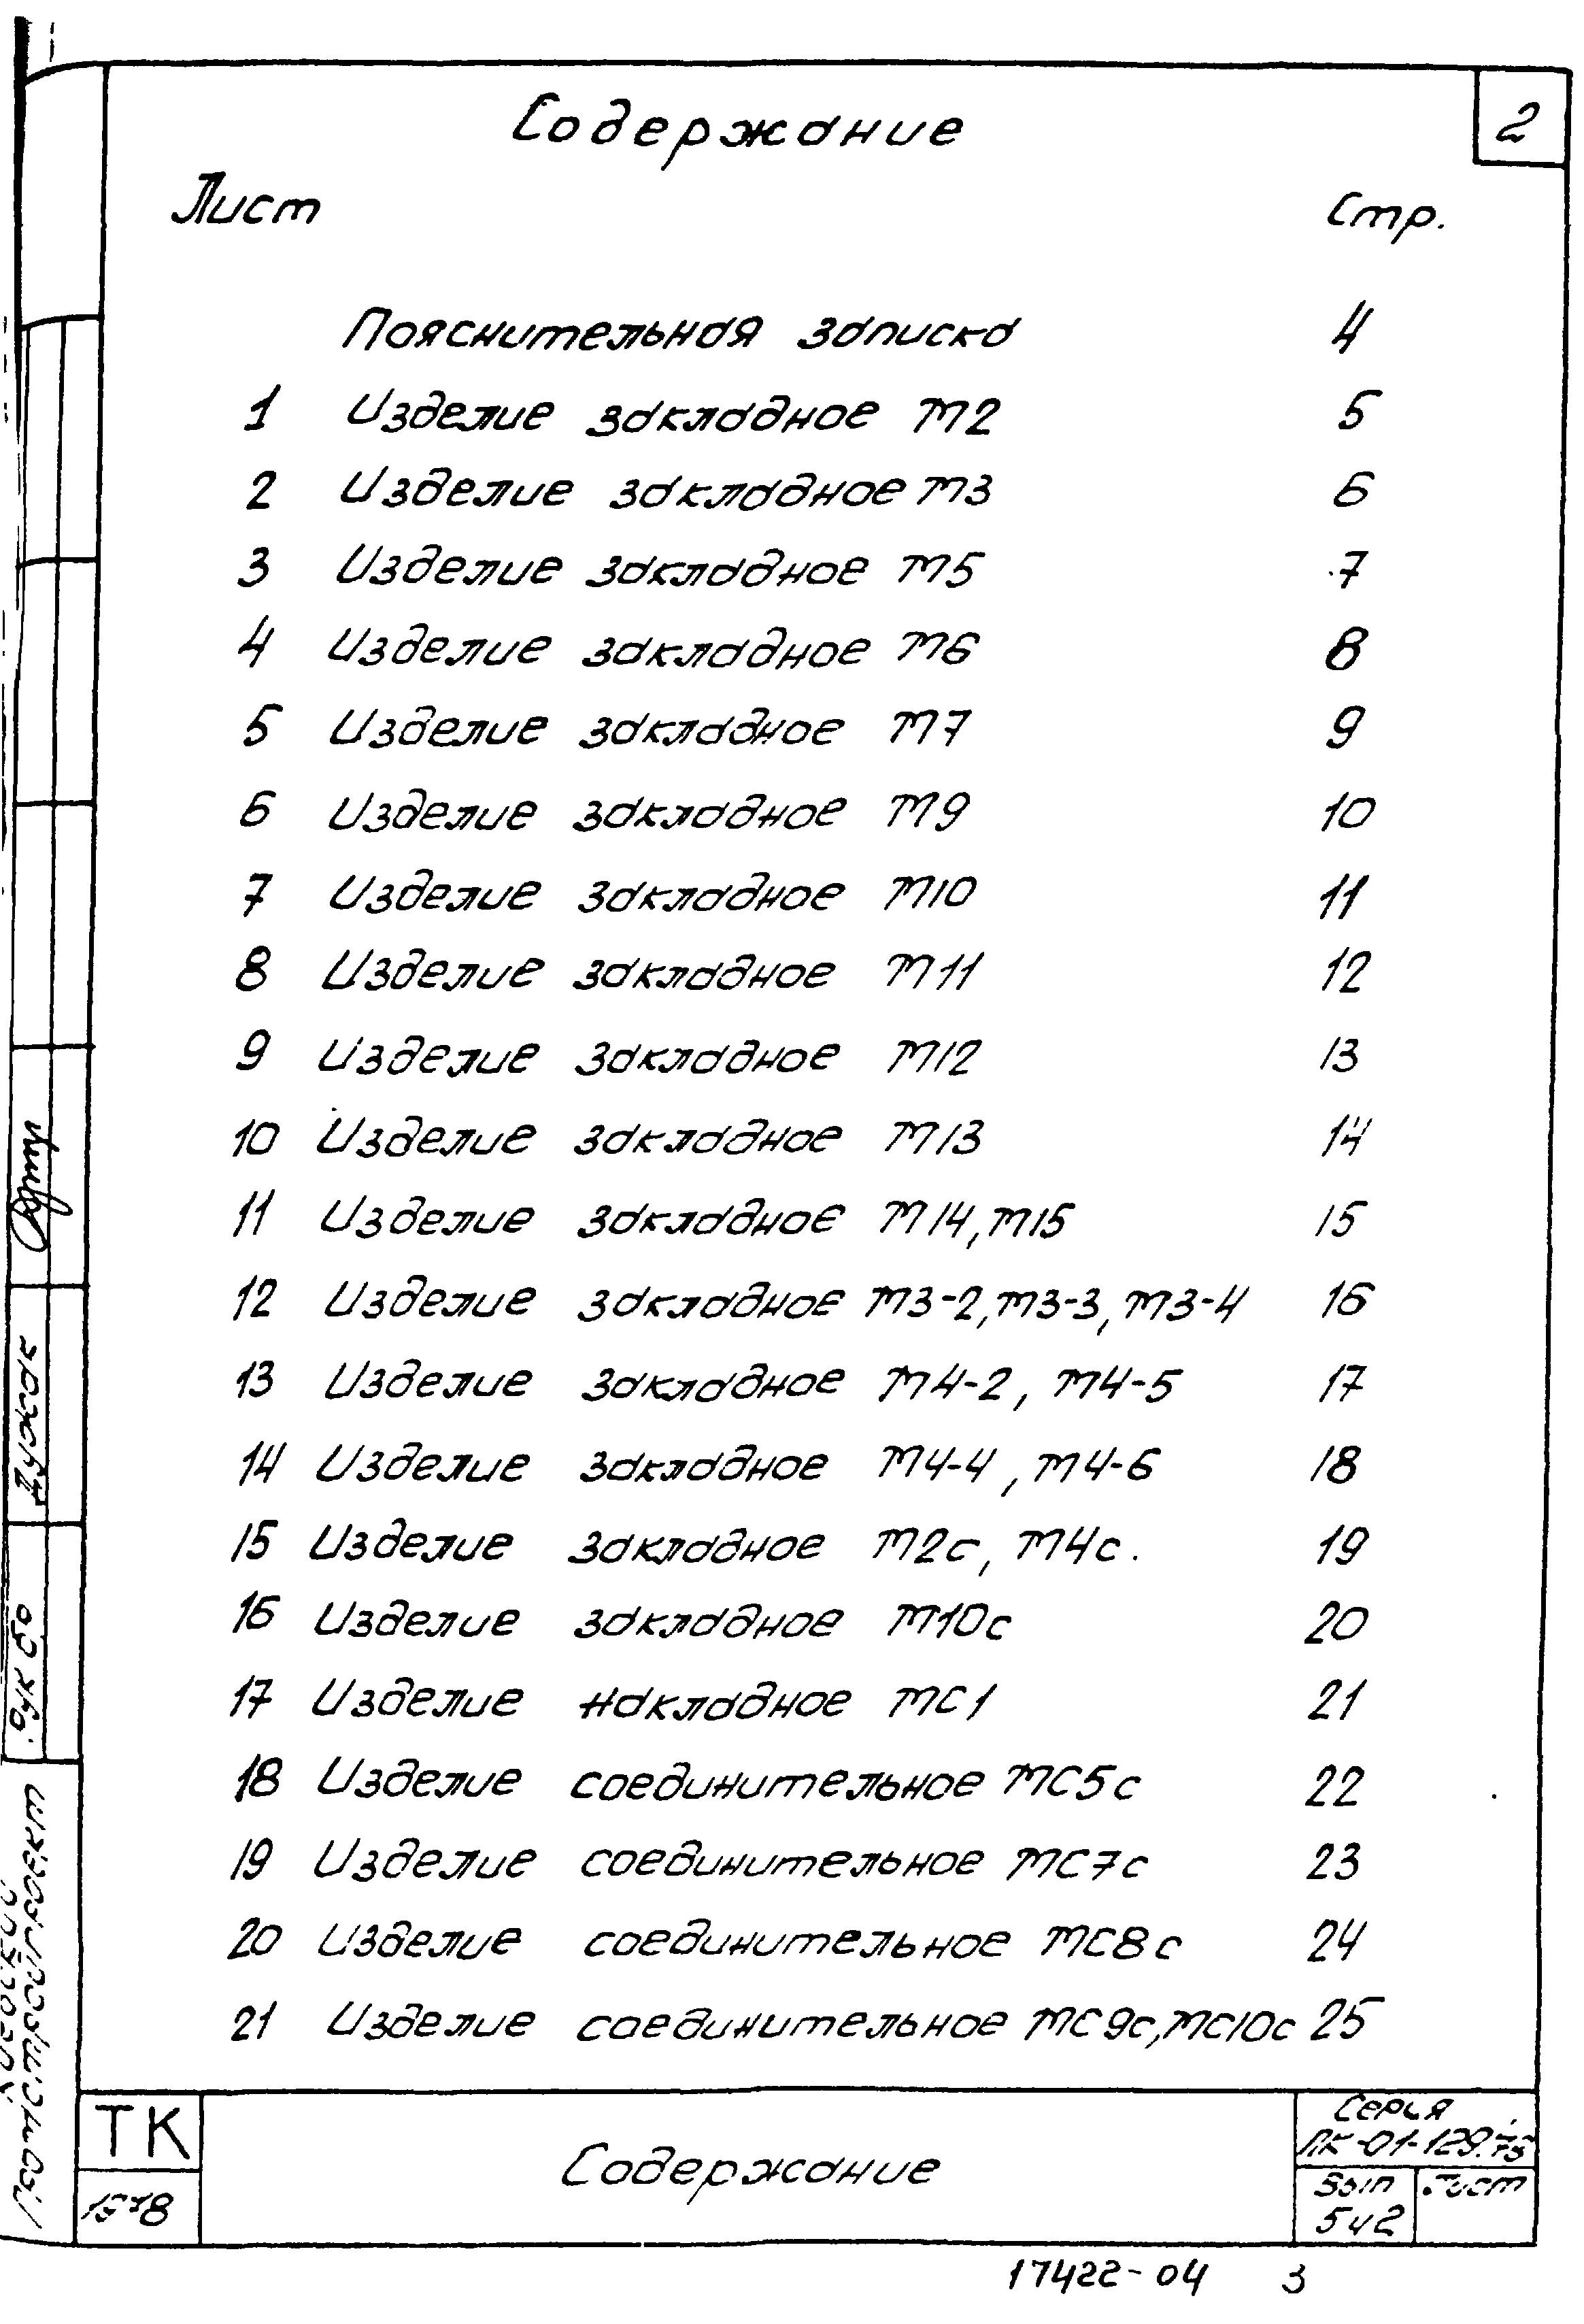 2
Содержание
Лист Стр.
Пояснительная записка 4
1 Изделие закладное М2 5
2 Изделие закладное М3 6
3 Изделие закладное М5 7
4 Изделие закладное М6 8
5 Изделие закладное М7 9
6 Изделие закладное М9 10
7 Изделие закладное М10 11
8 Изделие закладное М11 12
9 Изделие закладное М12 13
10 Изделие закладное М13 14
11 Изделие закладное М14, М15 15
12 Изделие закладное М3-2, М3-3, М3-4 16
13 Изделие закладное М4-2, М4-5 17
14 Изделие закладное М4-4, М4-6 18
15 Изделие закладное М2с, М4с. 19
16 Изделие закладное М10с 20
17 Изделие накладное МС1 21
18 Изделие соединительное МС5с 22
19 Изделие соединительное МС7с 23
20 Изделие соединительное МС8с 24
21 Изделие соединительное МС9с, МС10с 25
ТК
1978
Содержание
Серия
ПК-01-129.78
Вып Лист
5ч2
17422-04 3